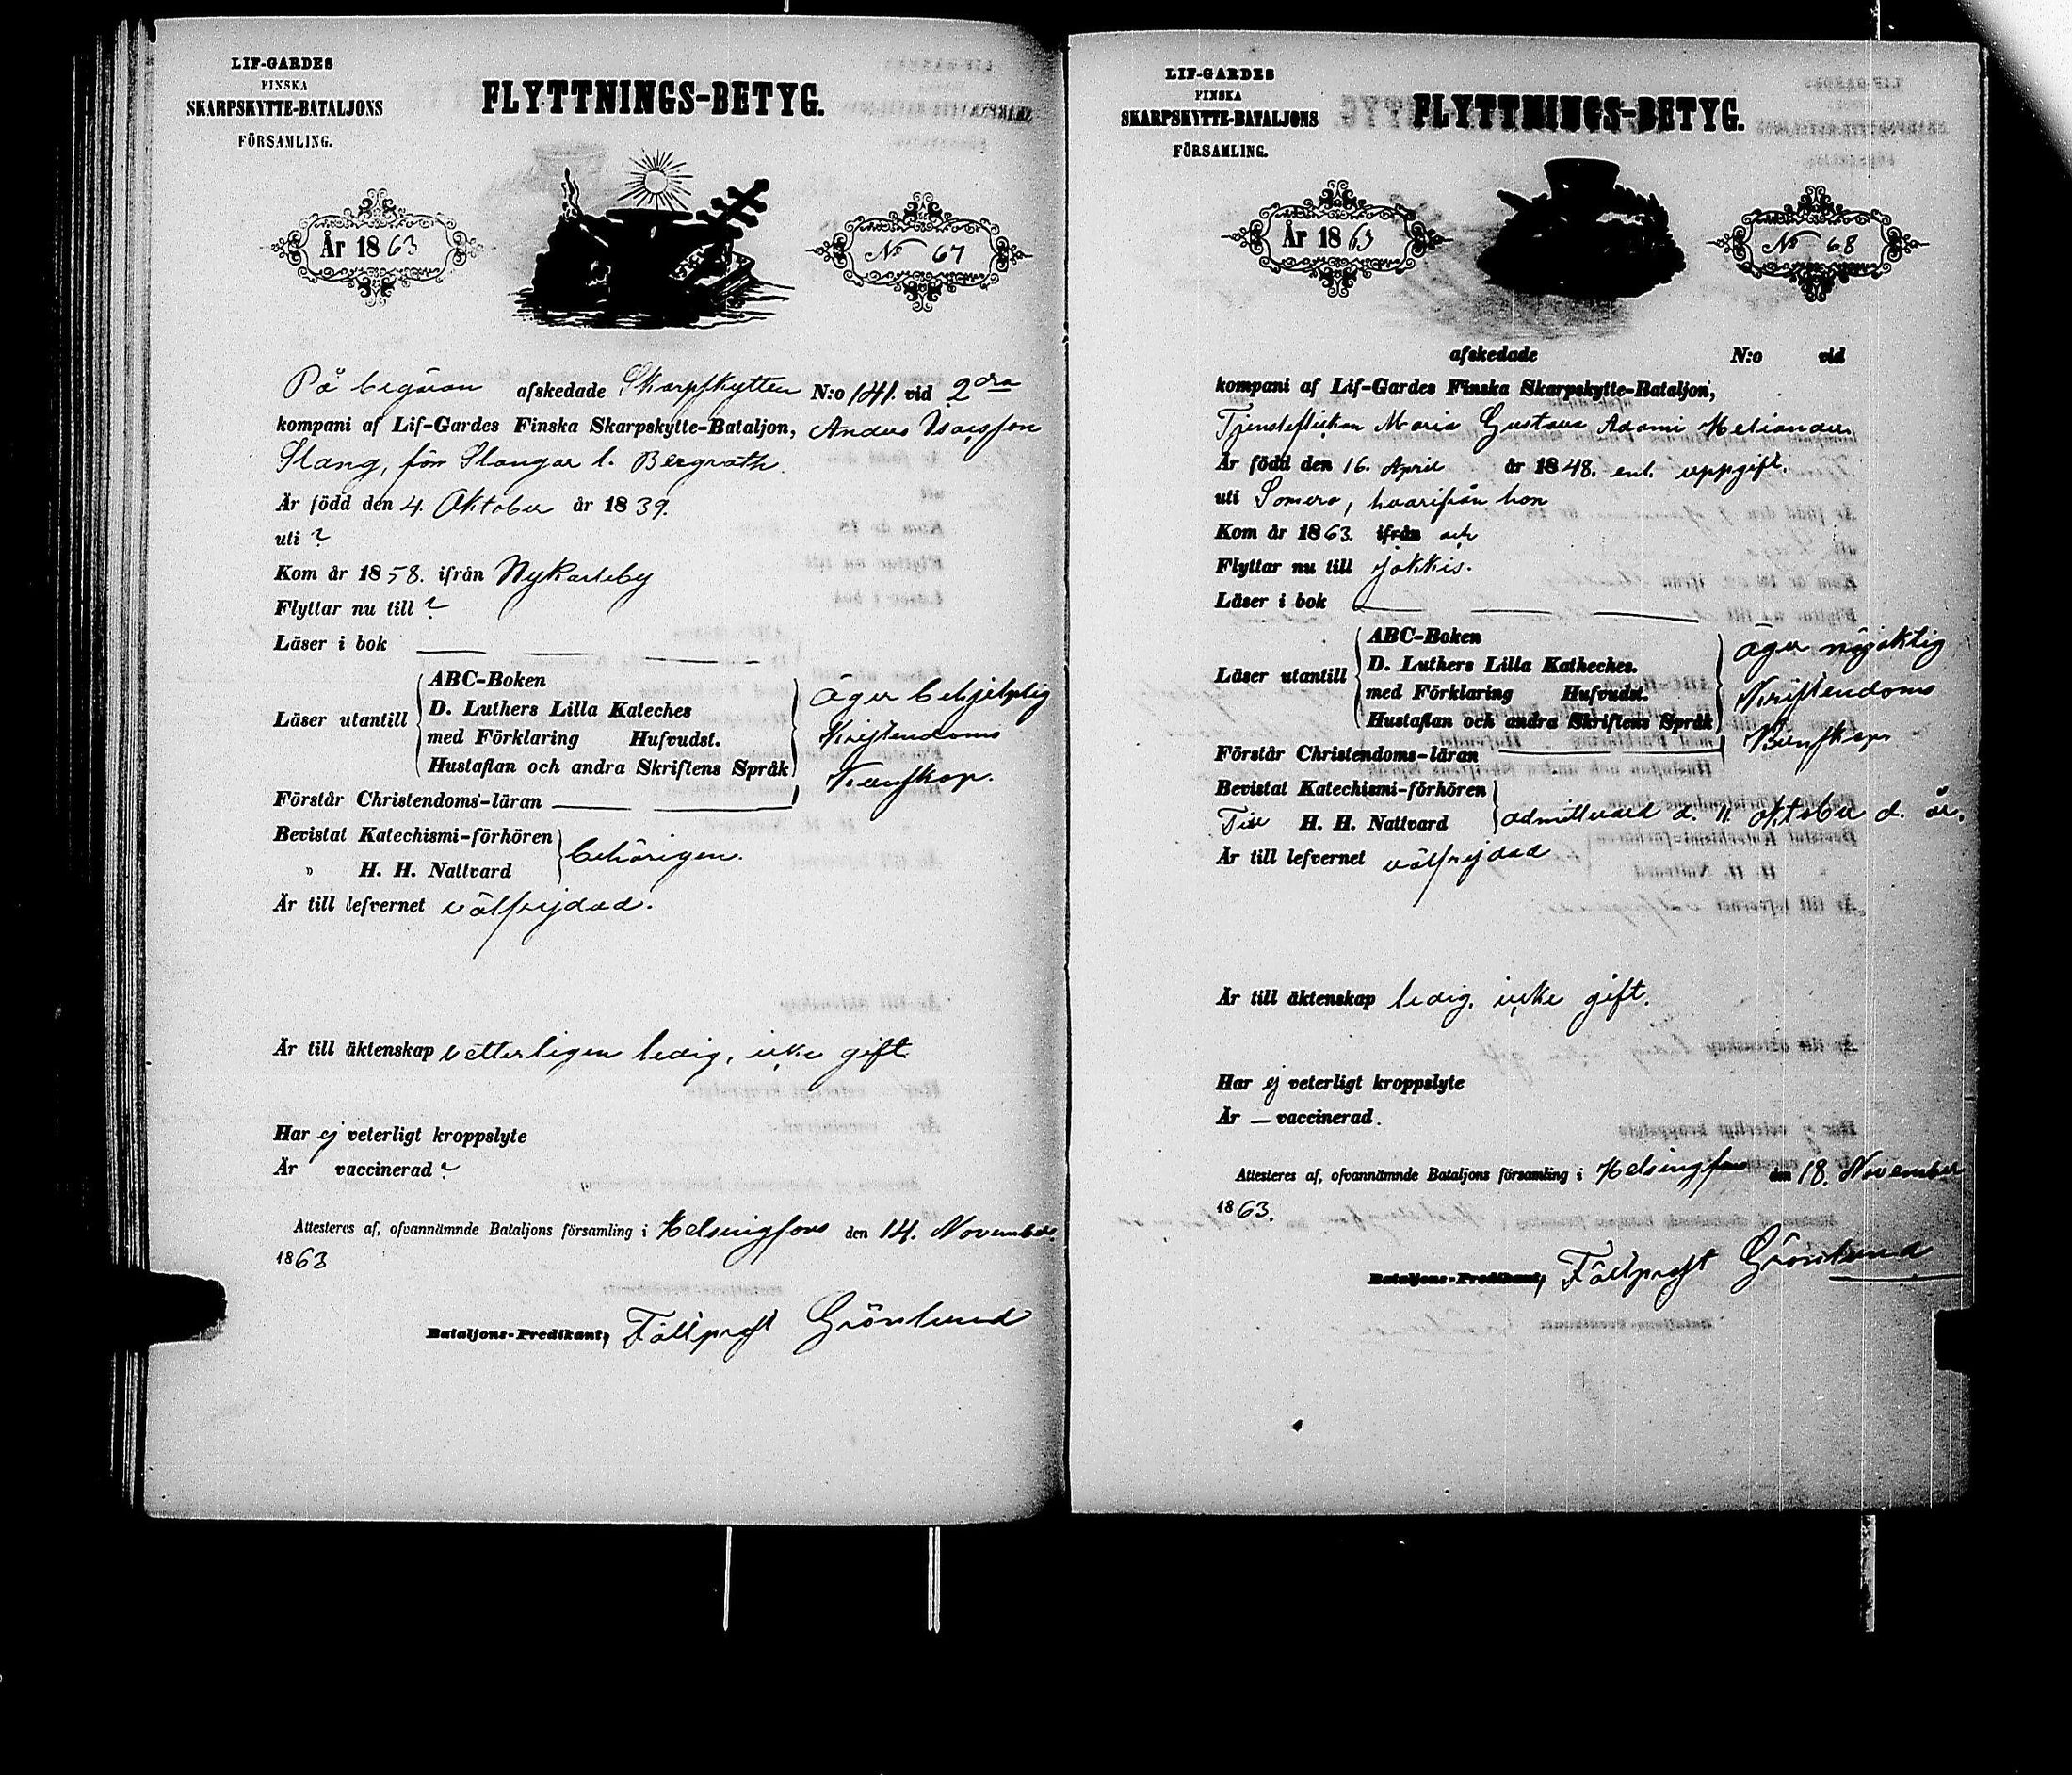 LIF-GARDES
FINSKA
SKARPSKYTTE-BATALJONS
FÖRSAMLING.
FLYTTNINGS-BETYG.
År 1863
No 67
På begäran afskedade Skarpskytten N:o 141. vid 2dra
kompani af Lif-Gardes Finska Skarpskytte-Bataljon, Anders Isacsson
Slang, förr Slangar l. Bergroth.
Är född den 4. Oktober år 1839.
uti ?
Kom år 1858. ifrån Nykarleby
Flyttar nu till ?
Läser i bok
Läser utantill
ABC-Boken
D. Luthers Lilla Kateches
med Förklaring Hufvudst.
Hustaflan och andra Skriftens Språk
äger behjelplig
Kristendoms
Kunskap.
Förstår Christendoms-läran
Bevistat Katechismi-förhören
" H. H. Nattvard
behörigen.
Är till lefvernet välfrejdad.
Är till äktenskap vetterligen ledig, icke gift.
Har ej veterligt kroppslyte
Är vaccinerad ?
Attesteres af, ofvannämnde Bataljons församling i Helsingfors den 14. November
1863
Bataljons-Predikant, Fältprost Grönlund
LIF-GARDES
FINSKA
SKARPSKYTTE-BATALJONS
FÖRSAMLING.
FLYTTNINGS-BETYG.
År 1863
No 68
afskedade N:o vid
kompani af Lif-Gardes Finska Skarpskytte-Bataljon,
Tjensteflickan Maria Gustava Adami Heliander.
Är född den 16. April år 1848. enl. uppgift.
uti Somero, hvarifrån hon
Kom år 1863. ifrån och
Flyttar nu till Jokkis.
Läser i bok
Läser utantill
ABC-Boken
D. Luthers Lilla Katheches.
med Förklaring Hufvudst.
Hustaflan och andra Skriftens Språk
äger nöjaktig
Kristendoms
Kunskap
Förstår Christendoms-läran
Bevistat Katechismi-förhören
Till H. H. Nattvard
admitterad d. 11 Oktober d. år.
Är till lefvernet välfrejdad
Är till äktenskap ledig, icke gift.
Har ej veterligt kroppslyte
Är — vaccinerad.
Attesteres af, ofvannämnde Bataljons församling i Helsingfors den 18. November
1863.
Bataljons-Predikant, Fältprost Grönlund